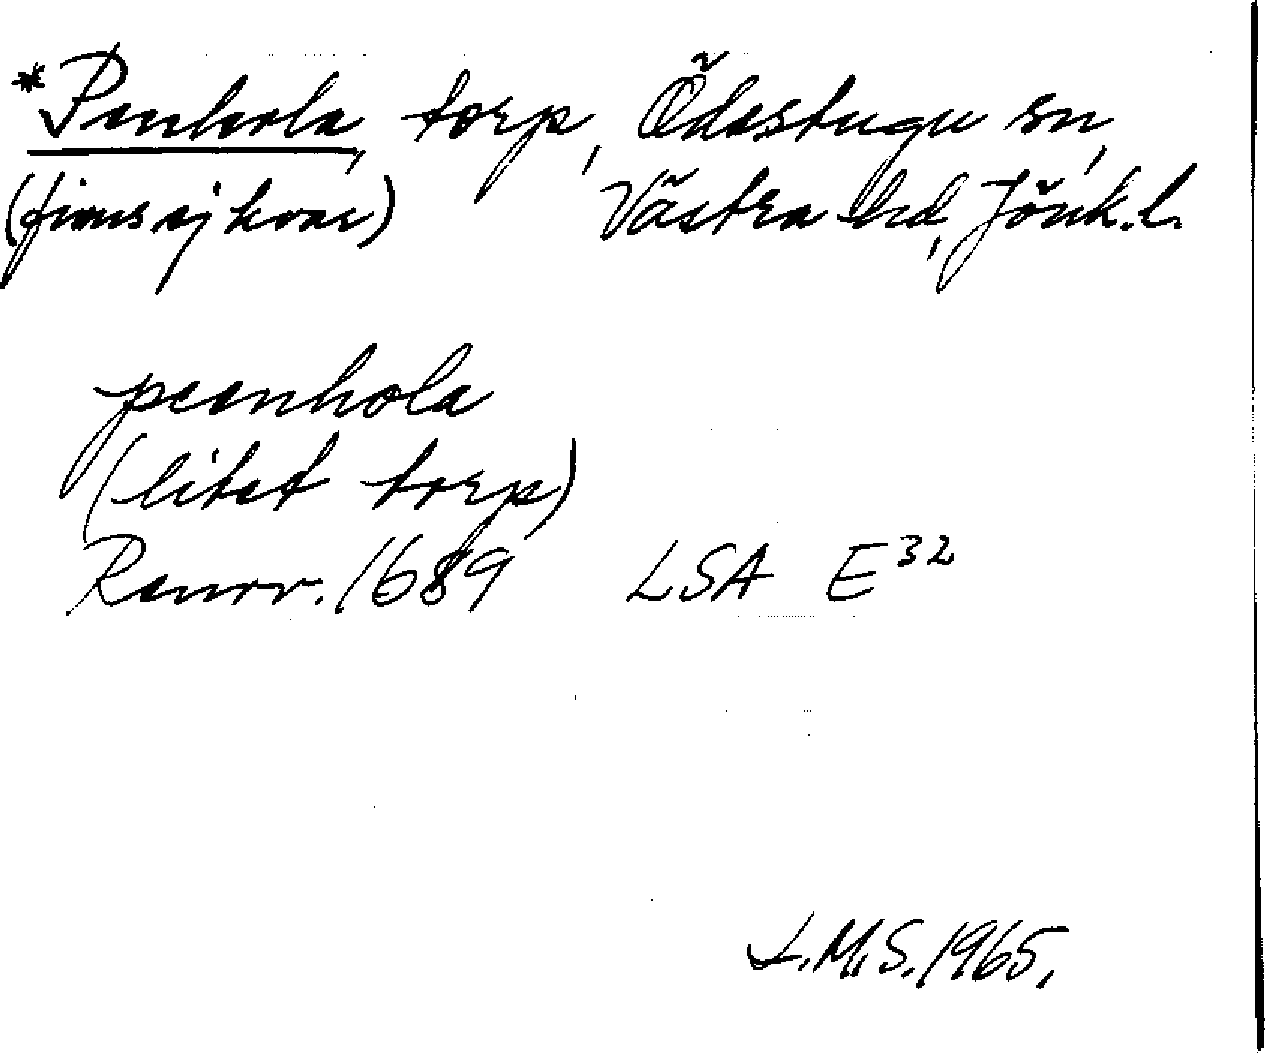 *Penhola, torp, Ödestugu sn,
(finns ej kvar) Västra hd, Jönk.l.
peenhola
(litet torp)
Ranrv. 1689 LSA E32
L.M.S. 1965.